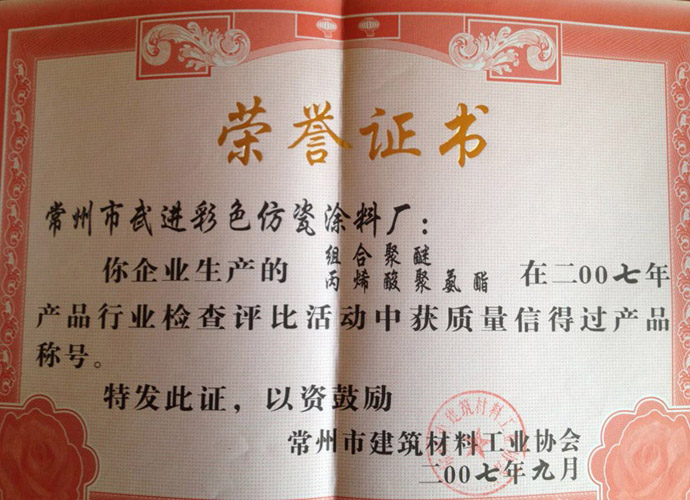 荣誉证书
常州市武进彩色仿瓷涂料厂：
组合聚醚
你企业生产的 丙烯酸聚氨酯 在二00七年
产品行业检查评比活动中获质量信得过产品
称号。
特发此证，以资鼓励
常州市建筑材料工业协会
二00七年九月